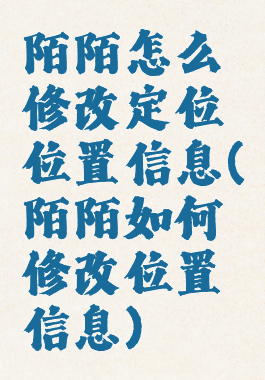 陌陌怎么
修改定位
位置信息(
陌陌如何
修改位置
信息)